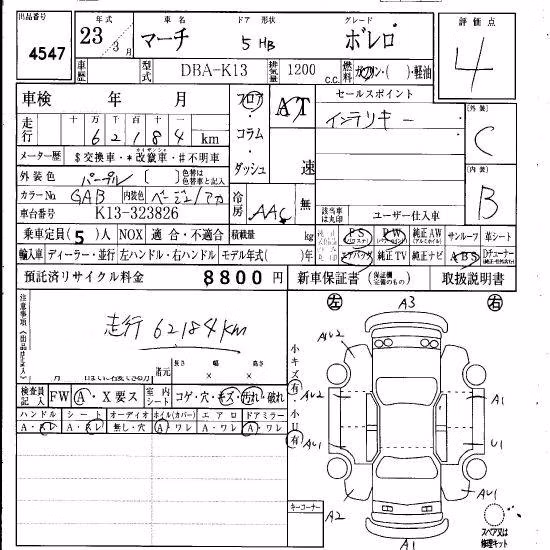 出品番号 年式 車名 ドア 形状 グレード 評価点
4547 23年 3月 マーチ 5 HB ボレロ 4
車歴 型式 DBA-K13 排気量 1200 C.C. 燃料 ガソリン・( )・軽油
車検 年 月 フロア・コラム・ダッシュ AT 速 セールスポイント
走行 十万千百十一 62184 km インテリキー 外装 C
メーター歴 $交換車・*改竄車・#不明車
外装色 パープル 〔 〕 色替は色替車と記入 内装 B
カラーNo. GAB 内装色 ベージュ/アカ 冷房 AAC 無 該当車は丸印 ユーザー仕入車
車台番号 K13-323826
乗車定員(5)人 NOX 適合・不適合 積載量 kg PS PW 純正AW サンルーフ 革シート
輸入車 ディーラー・並行 左ハンドル・右ハンドル モデル年式( )年 エアバッグ 純正TV 純正ナビ ABS Dチューナー
預託済リサイクル料金 8800円 新車保証書 (保証欄完備のもの) 取扱説明書
注意事項《出品店記入》
左 A3 右
走行 62184km
AU2
月 諸元 長さ × 幅 × 高さ
小キズ有・小U有
検査員記入 FW A・X要ス 室内シート コゲ・穴・キズ・汚れ・破れ
AU2 A1
ハンドル シート オーディオ ホイル(カバー) エアロ ドアミラー
A・スレ A・スレ 無し・穴 A・ワレ A・ワレ A・ワレ
AU1 U1
AU1
キーコーナー
A2
A1
スペア又は修理キット